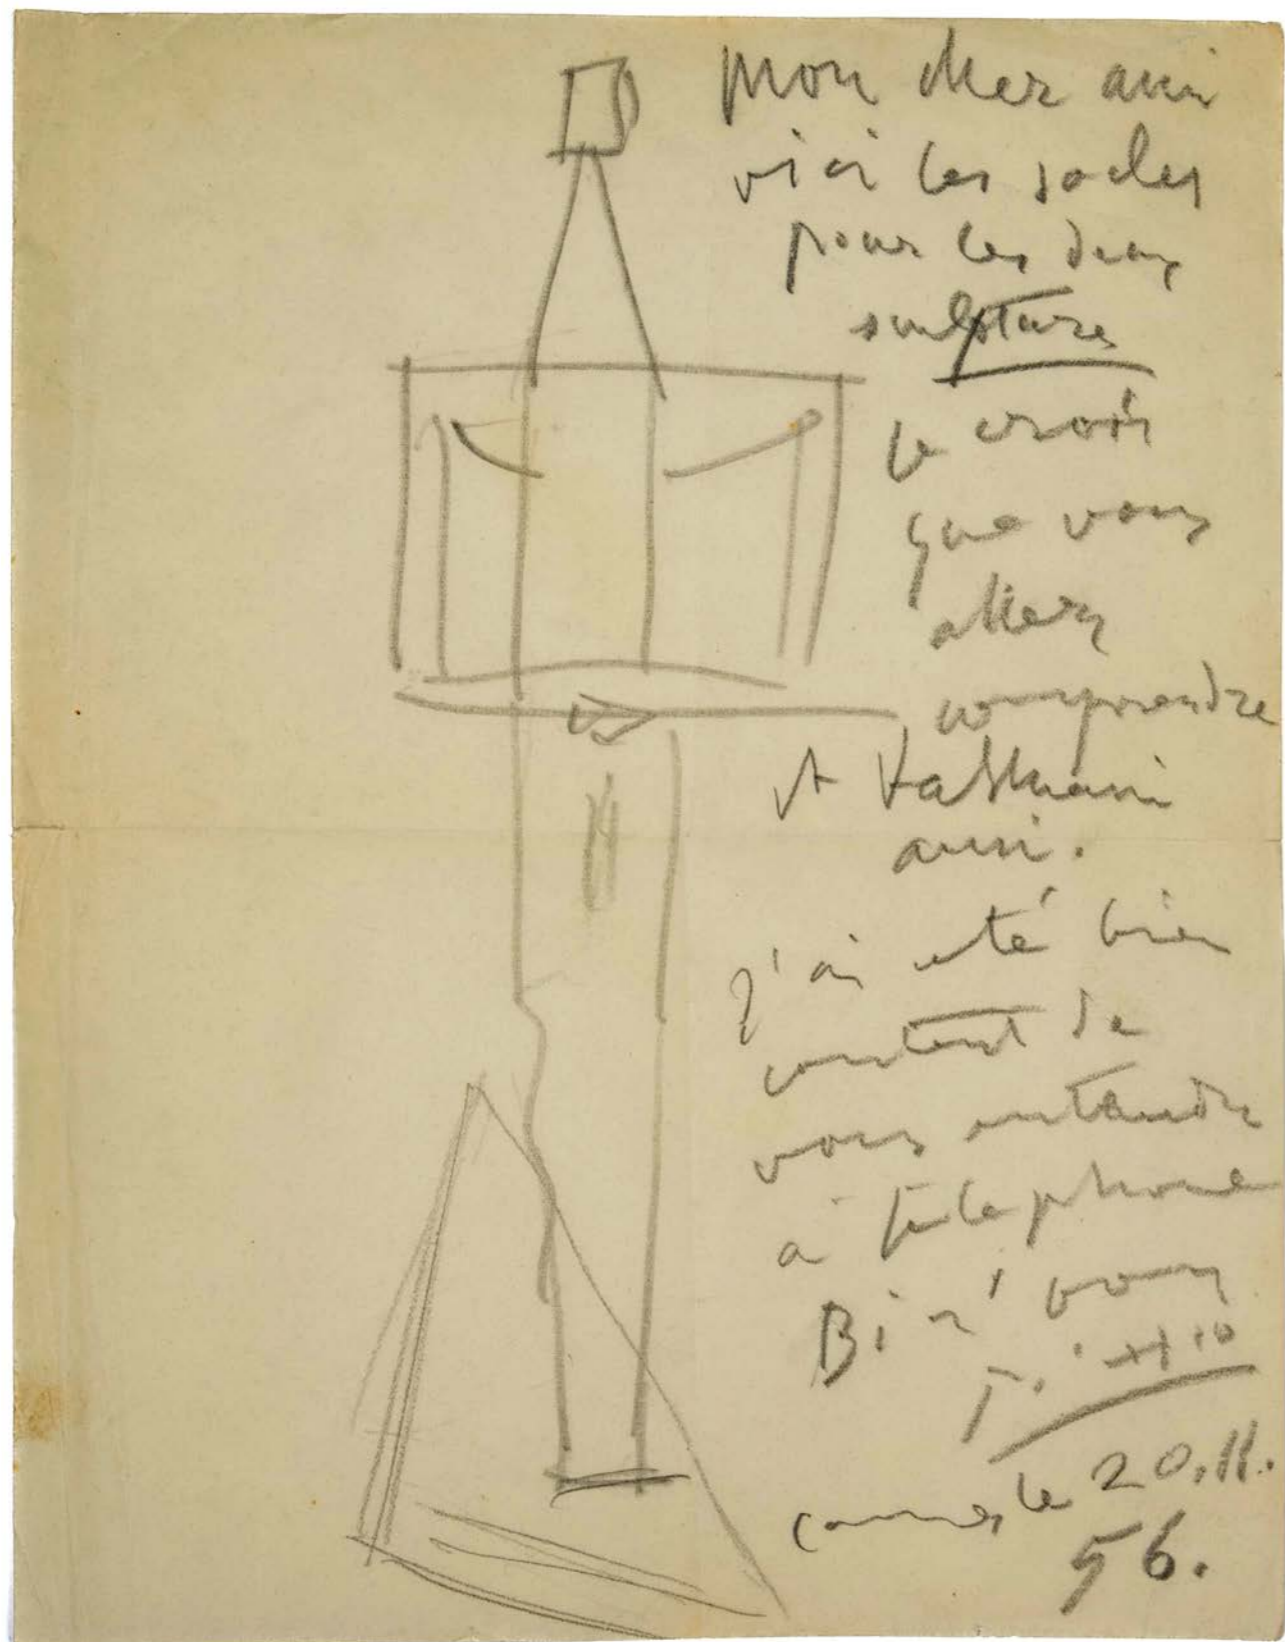 mon cher ami
vici les socles
pour les deux
sculpture
je crois
que vous
allez
comprendre
et Kahnweiler
aussi.
j'ai eté bien
content de
vous entendre
à téléphone
Bi a' vous
cannes le 20.11.
56.